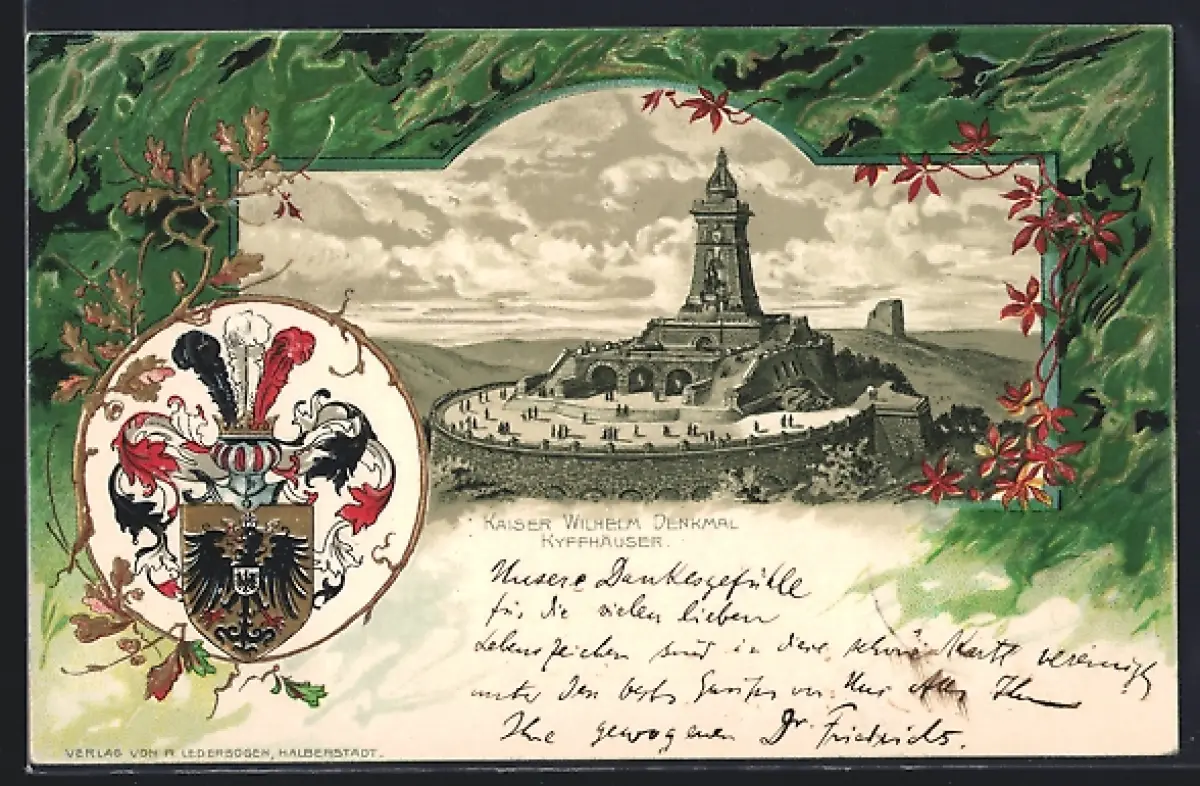 KAISER WILHELM DENKMAL
KYFFHÄUSER.
Unsere Dankesgefühle
für die vielen lieben
Lebenszeichen sind in diese schöne Karte vereinigt
unter den besten Grüßen von
Ihre gewogenen Dr. Friedrichs.
VERLAG VON R. LEDERBOGEN, HALBERSTADT.